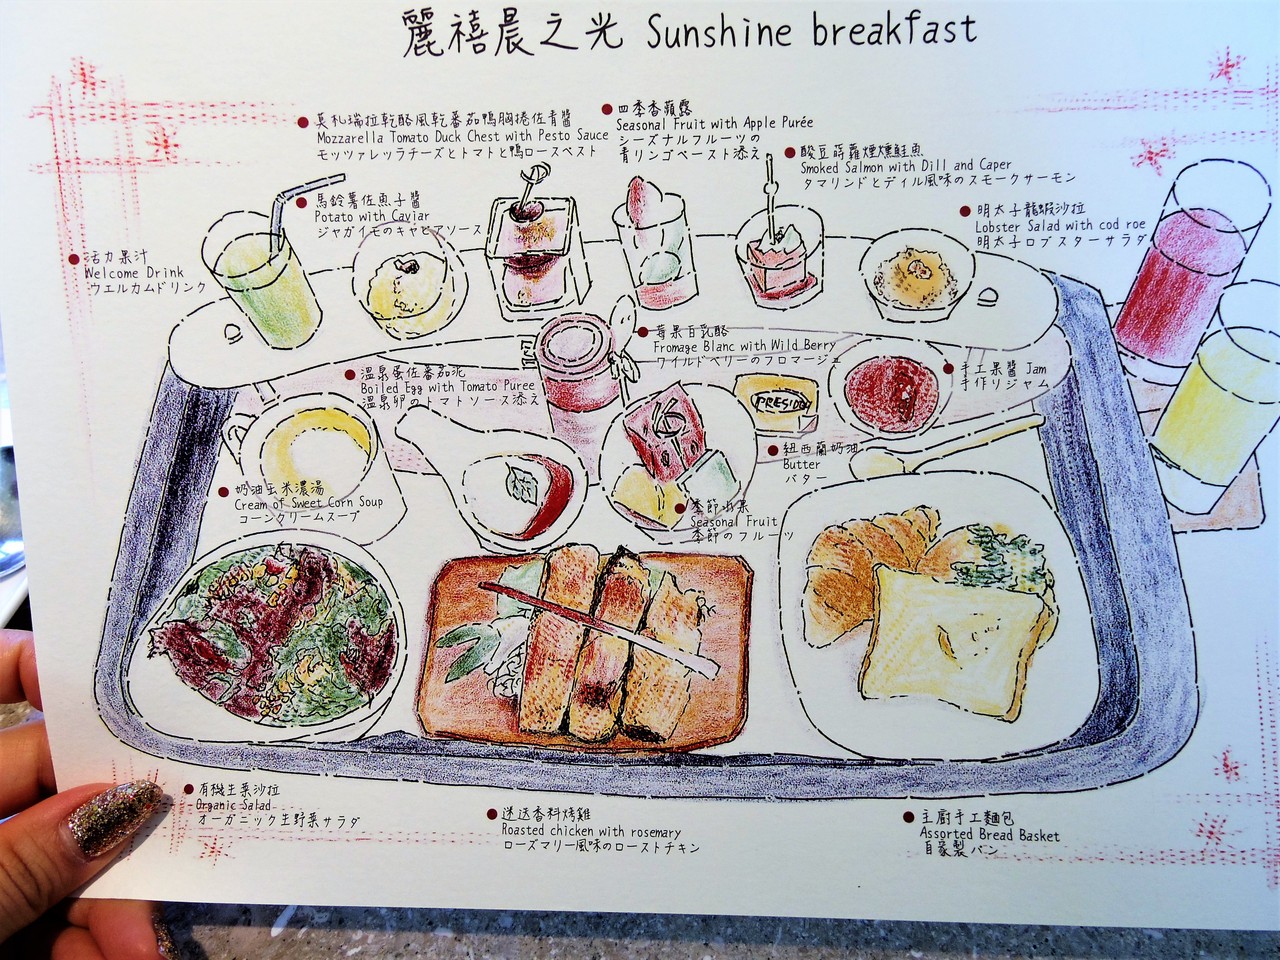 麗禧晨之光 Sunshine breakfast
莫札瑞拉乾酪風乾蕃茄鴨胸捲佐青醬
Mozzarella Tomato Duck Chest with Pesto Sauce
モッツァレッラチーズとトマトと鴨ロースペスト
四季香蘋露
Seasonal Fruit with Apple Purée
シーズナルフルーツの
青リンゴペースト添え
酸豆蒔蘿煙燻鮭魚
Smoked Salmon with Dill and Caper
タマリンドとディル風味のスモークサーモン
馬鈴薯佐魚子醬
Potato with Caviar
ジャガイモのキャビアソース
明太子龍蝦沙拉
Lobster Salad with cod roe
明太子ロブスターサラダ
活力果汁
Welcome Drink
ウエルカムドリンク
莓果白乳酪
Fromage Blanc with Wild Berry
ワイルドベリーのフロマージュ
溫泉蛋佐蕃茄泥
Boiled Egg with Tomato Puree
溫泉卵のトマトソース添え
手工果醬 Jam
手作りジャム
PRESIDENT
紐西蘭奶油
Butter
バター
奶油玉米濃湯
Cream of Sweet Corn Soup
コーンクリームスープ
季節水果
Seasonal Fruit
季節のフルーツ
有機生菜沙拉
Organic Salad
オーガニック生野菜サラダ
迷迭香料烤雞
Roasted chicken with rosemary
ローズマリー風味のローストチキン
主廚手工麵包
Assorted Bread Basket
自家製パン